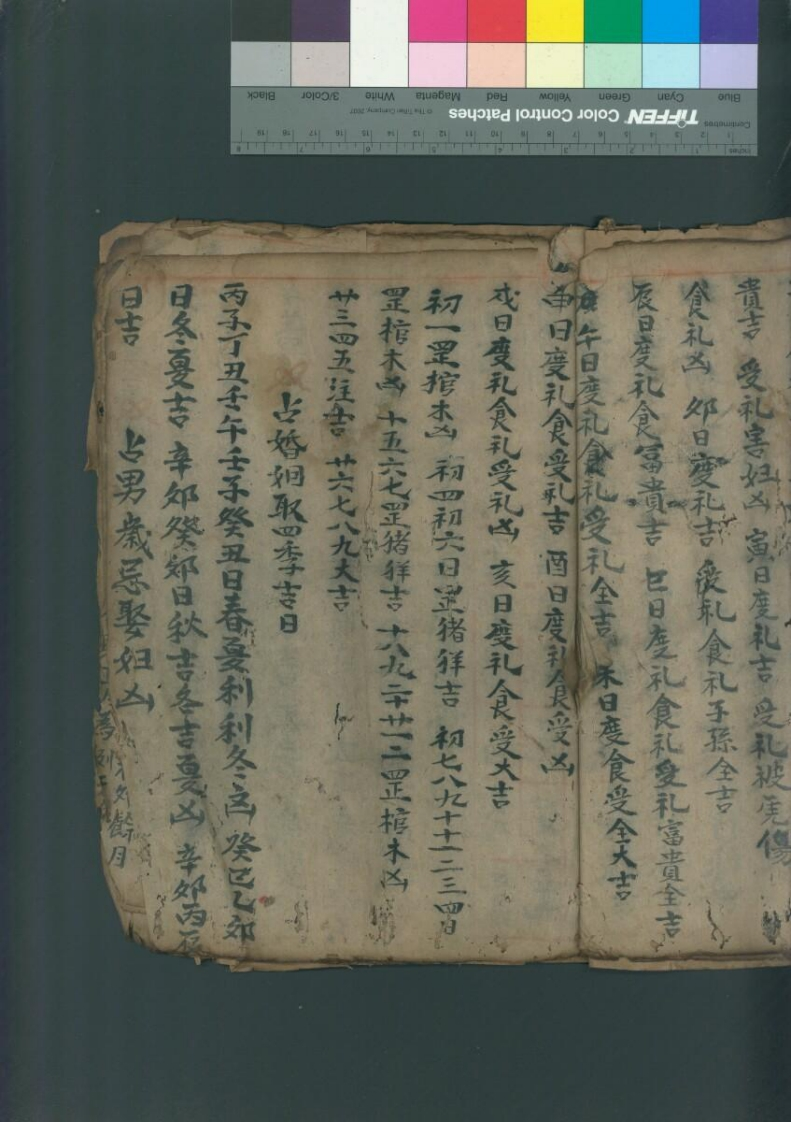 貴吉 受礼害妇凶 寅日度礼吉 受礼被虎傷
食礼凶 夘日度礼吉 受礼食礼子孫全吉
辰日度礼食富貴吉 巳日度礼食礼受礼富貴全吉
午日度礼食礼受礼全吉 未日度食受全大吉
申日度礼食受礼吉 酉日度礼食受凶
戍日度礼食礼受礼凶 亥日度礼食受大吉
初一罡棺木凶 初四初六日罡猪羊吉 初七八九十十一二三四日
罡棺木凶 十五六七罡猪羊吉 十八九二十廿一二罡棺木凶
廿三四五注吉 廿六七八九大吉
占婚姻取四季吉日
丙子丁丑壬午壬子癸丑日春夏利利冬凶 癸巳乙夘
日冬夏吉 辛夘癸夘日秋吉冬吉夏凶 辛夘丙
日吉 占男歲忌娶妇凶
TIFFEN Color Control Patches
© The Tiffen Company, 2007
Centimetres
Inches
Blue Cyan Green Yellow Red Magenta White 3/Color Black